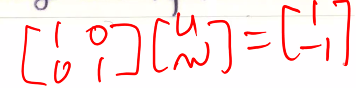 [1 0; 0 1] [u; w] = [1; -1]